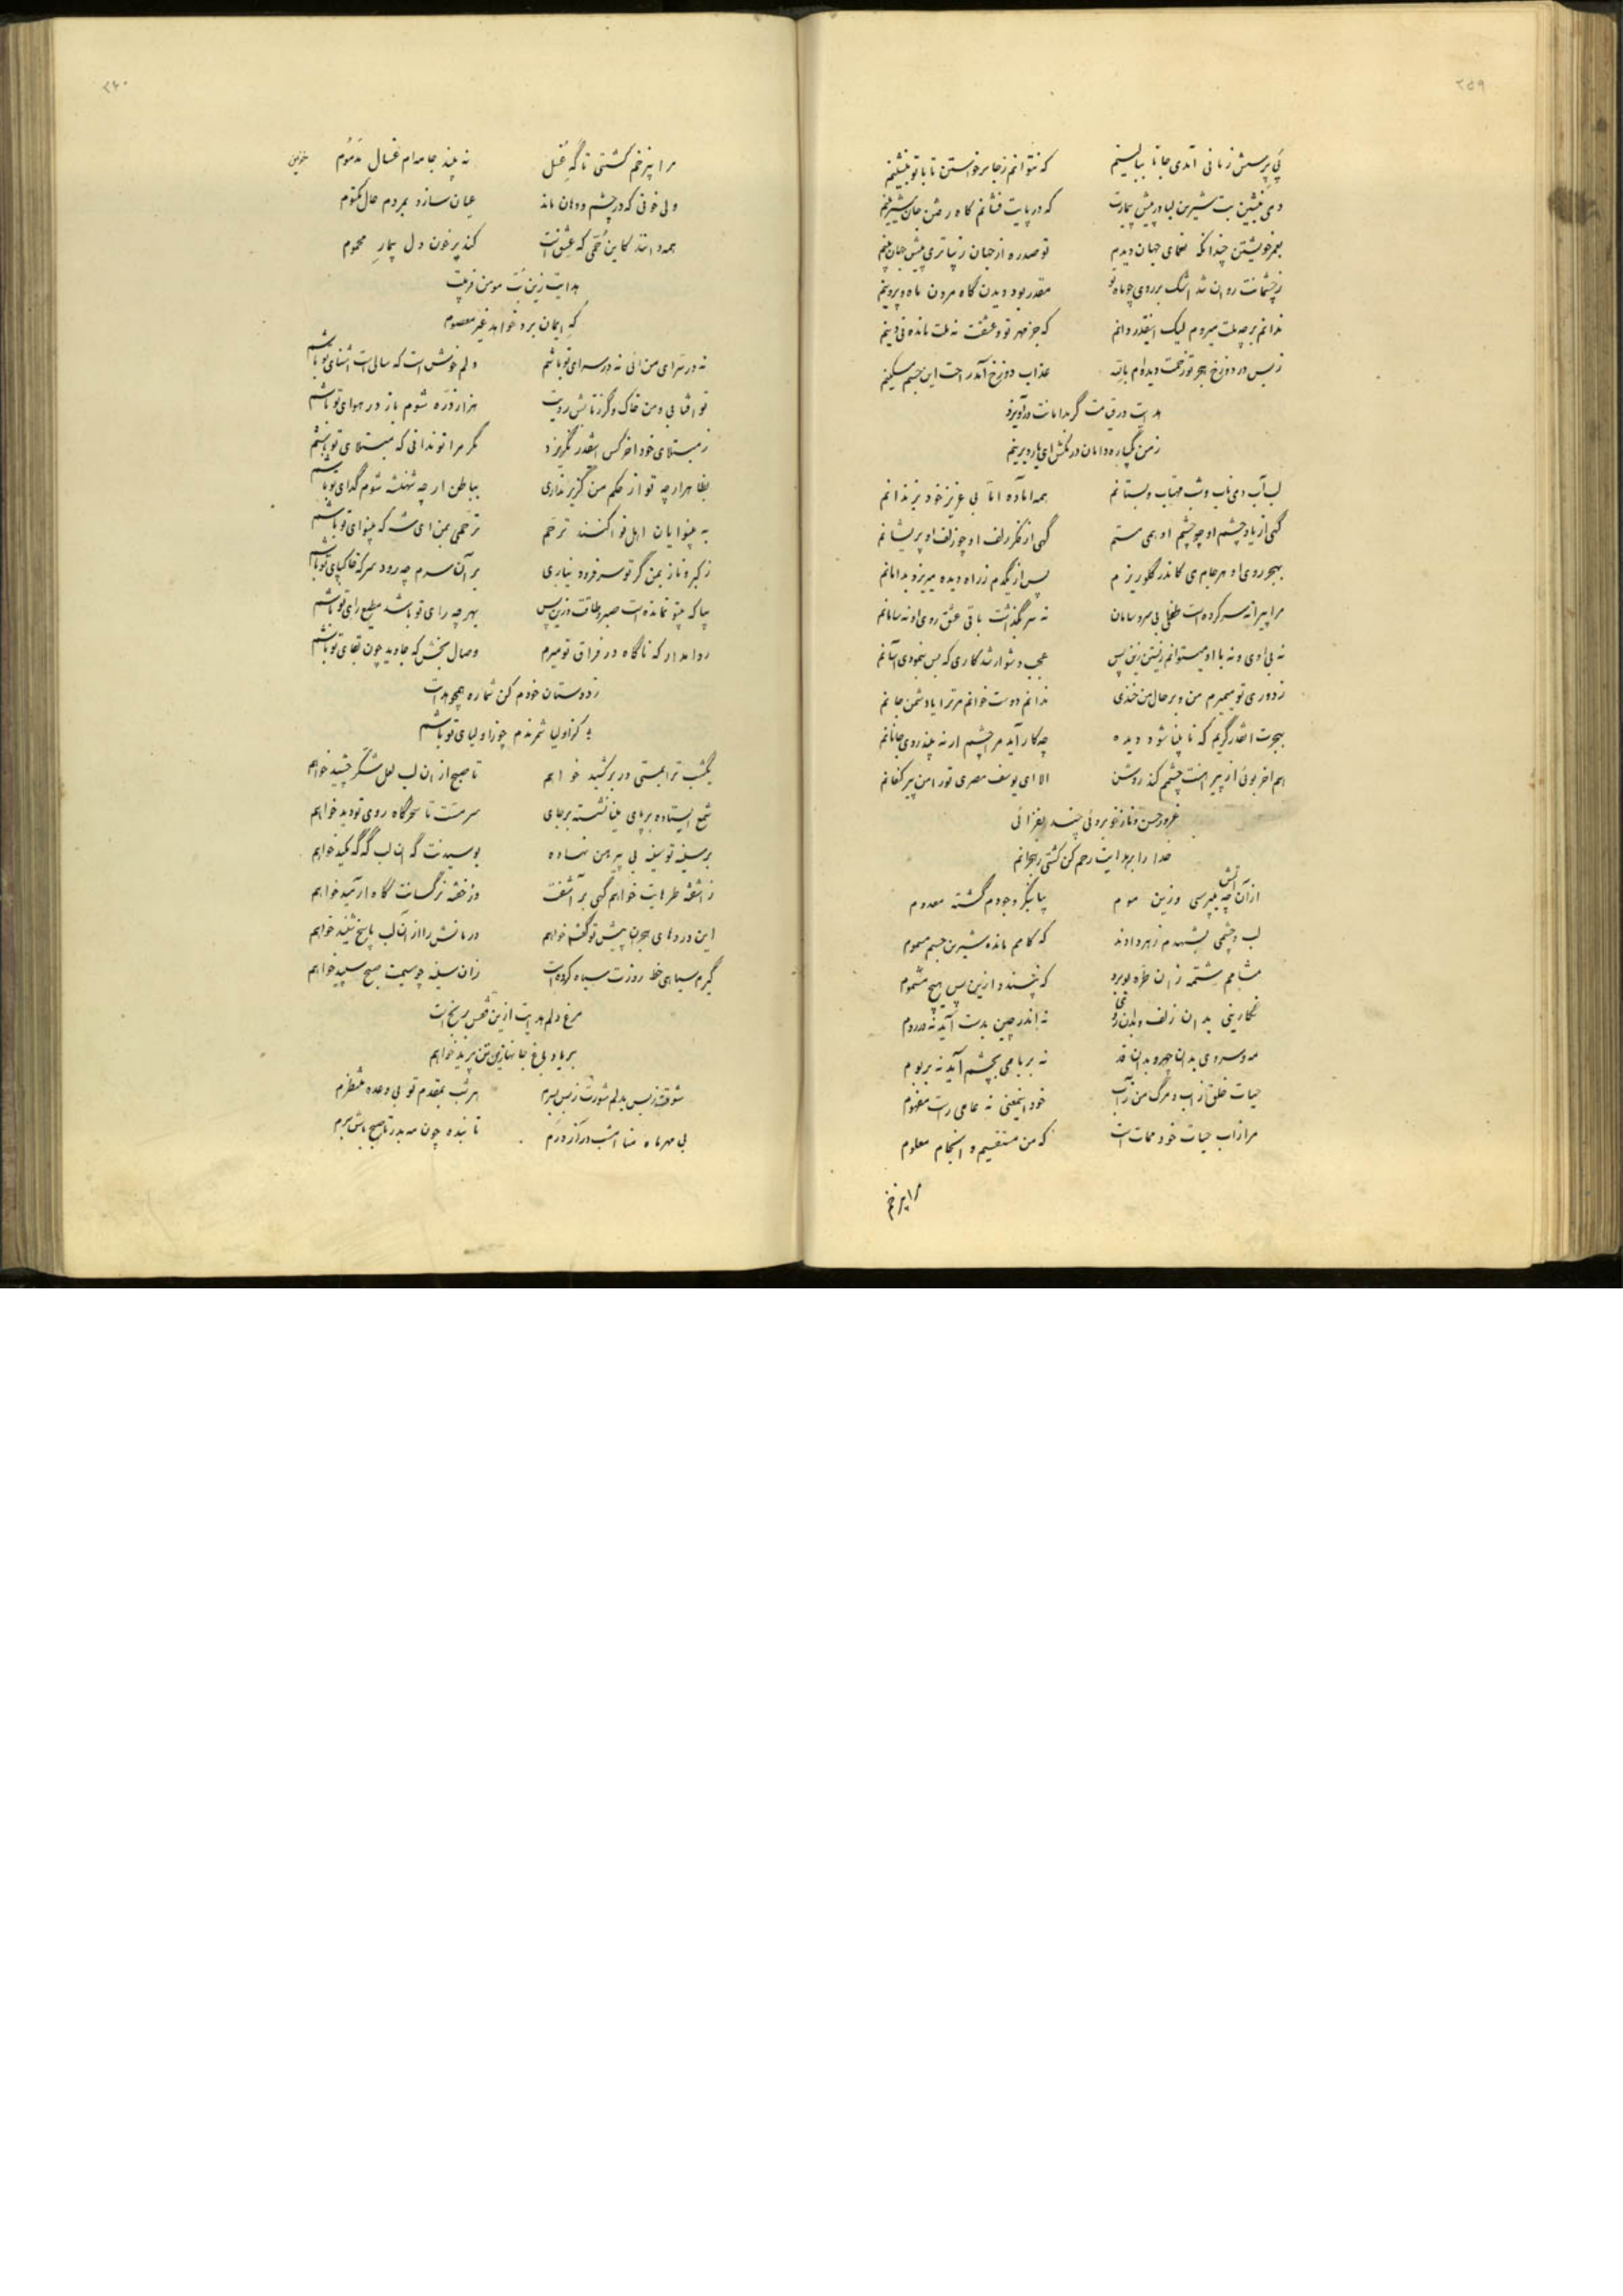 ۲۵۹
پی پرسش زمانی آمدی جانا ببالینم که نتوانم زجا برخواستن تا با تو بنشینم
دمی بنشین بت شیرین لبا در پیش بیمارت که در پایت فشانم گاه رفتن جان شیرینم
بعمر خویشتن چندانکه جهان دیدم تو صد ره از جهان زیباتری پیش جهان بینم
زچشمانت روان شد اشک بر روی چو ماه تو مقدر بود دیدن گاه مردن ماه و پروینم
ندانم بر چه ملت میروم لیک اینقدر دانم که جز مهر تو و عشقت نه ملت مانده نی دینم
ز بس در دوزخ هجر تو زحمت دیده‌ام عذاب دوزخ آمد راحت این جسم مسکینم
هدایت در قیامت گر بدامانت درآویزد
ز من یکباره دامان در مکش ای یار دیرینم
لب آب و می ناب و شب مهتاب و بستانم همه آماده اما بی عزیز خود بزندانم
گهی از یاد چشم او چو چشم او همی مستم گهی از فکر زلف او چو زلف او پریشانم
بهجر روی او هر جام می کاندر گلو ریزم پس از یکدم ز راه دیده میریزد بدامانم
مرا پیرانه سر کرده است طفلی بی سر و سامان نه سر بگذاشت باقی عشق روی او نه سامانم
نه بی اوی و نه با او میتوانم زیستن زین پس عجب دشوار شد کاری که بس بنمودی آسانم
ز دوری تو میمیرم من و بر حال من خندی ندانم دوست خوانم مر ترا یا دشمن جانم
بهجرت آنقدر گریم که نابینا شود دیده چه کار آید مرا چشم ار نه بیند روی جانانم
هم آخر بوئی از پیراهنت چشمم کند روشن الا ای یوسف مصری تو را من پیر کنعانم
غرور حسن و ناز خوبروئی چند بفزائی
خدا را بر هدایت رحم کن کشتی ز هجرانم
از آن آتش چه میپرسی وزین موم بیا بنگر وجودم گشته معدوم
لب و چشمی بشهدم زهر دادند که کامم مانده شیرین جسم مسموم
مشامم شمه زان طره بوبرد که نپسندد ازین پس هیچ مشموم
نگارینی بدان زلف و بدان رخ نه اندر چین بدست آید نه در روم
مه و سروی بدان چهر و بدان قد نه بر بامی بچشم آید نه بر بوم
حیات خلق از آب و مرگ من ز آب خود اینمعنی نه عامی راست مفهوم
مرا زاب حیات خود ممات است که من مستقیم و انجام معلوم
مرا پر زخم
۲۶۰
مرا پر زخم کشتی تا گه غسل نه بیند جامه‌ام غسال مذموم
ولی خونی که در چشم و دهان ماند عیان سازد بمردم حال مکتوم
همه دانند کاین حمی که عشق است کند پر خون دل بیمار محموم خونین
هدایت زین بت مومن فریبت
که ایمان برد نخواهد غیر معصوم
نه در سرای من آئی نه در سرای تو باشم دلم خوش است که سالی است آشنای تو باشم
تو آفتابی و من خاک و گر ز تابش رویت هزار ذره شوم باز در هوای تو باشم
ز مبتلای خود آخر کس اینقدر نگریزد مگر مرا تو ندانی که مبتلای تو باشم
بظاهر ار چه تو از حکم من گزیر نداری بباطن ار چه شهنشه شوم گدای تو باشم
به بینوایان اهل نوا کنند ترحم ترحمی بمن ای شه که بینوای تو باشم
ز کبر و ناز بمن گر تو سر فرود نیاری بر آن سرم چه رود سر که خاکپای تو باشم
بیا که بیتو نمانده است صبر و طاقت و زین پس بهر چه رای تو باشد مطیع رای تو باشم
روا مدار که ناگاه در فراق تو میرم وصال بخش که جاوید چون بقای تو باشم
ز دوستان خودم کن شماره همچو هدایت
گر از اولیا شمرندم چو ز اولیای تو باشم
یکشب ترا بمستی در بر کشید خواهم تا صبح از آن لب لعل شکر چشید خواهم
شمع ایستاده بر پای مینا نشسته بر جای سرمست تا سحرگاه روی تو دید خواهم
بر سینه تو سینه بی پیرهن نهاده بوسیدنت گه آن لب گه گه مکید خواهم
زآشفته طره‌ایت خواهم گهی بر آشفت وز خفته نرگسانت گاه آرمید خواهم
این دردهای هجران پیش تو گفت خواهم درمانش را از آن لب پاسخ شنید خواهم
گیرم سیاهی خط روزت سیاه کرده است زان سینه چو سیمت صبح سپید خواهم
مرغ دلم هدایت ازین قفس برنج است
بر یاد باغ جانها زین تن پرید خواهم
شوقت ز بس بدلم شورت ز بس بسرم هر شب بمقدم تو بی وعده منتظرم
بی مهر ماه منا امشب در آ ز درم تابنده چون مه بدر تا صبح باش برم